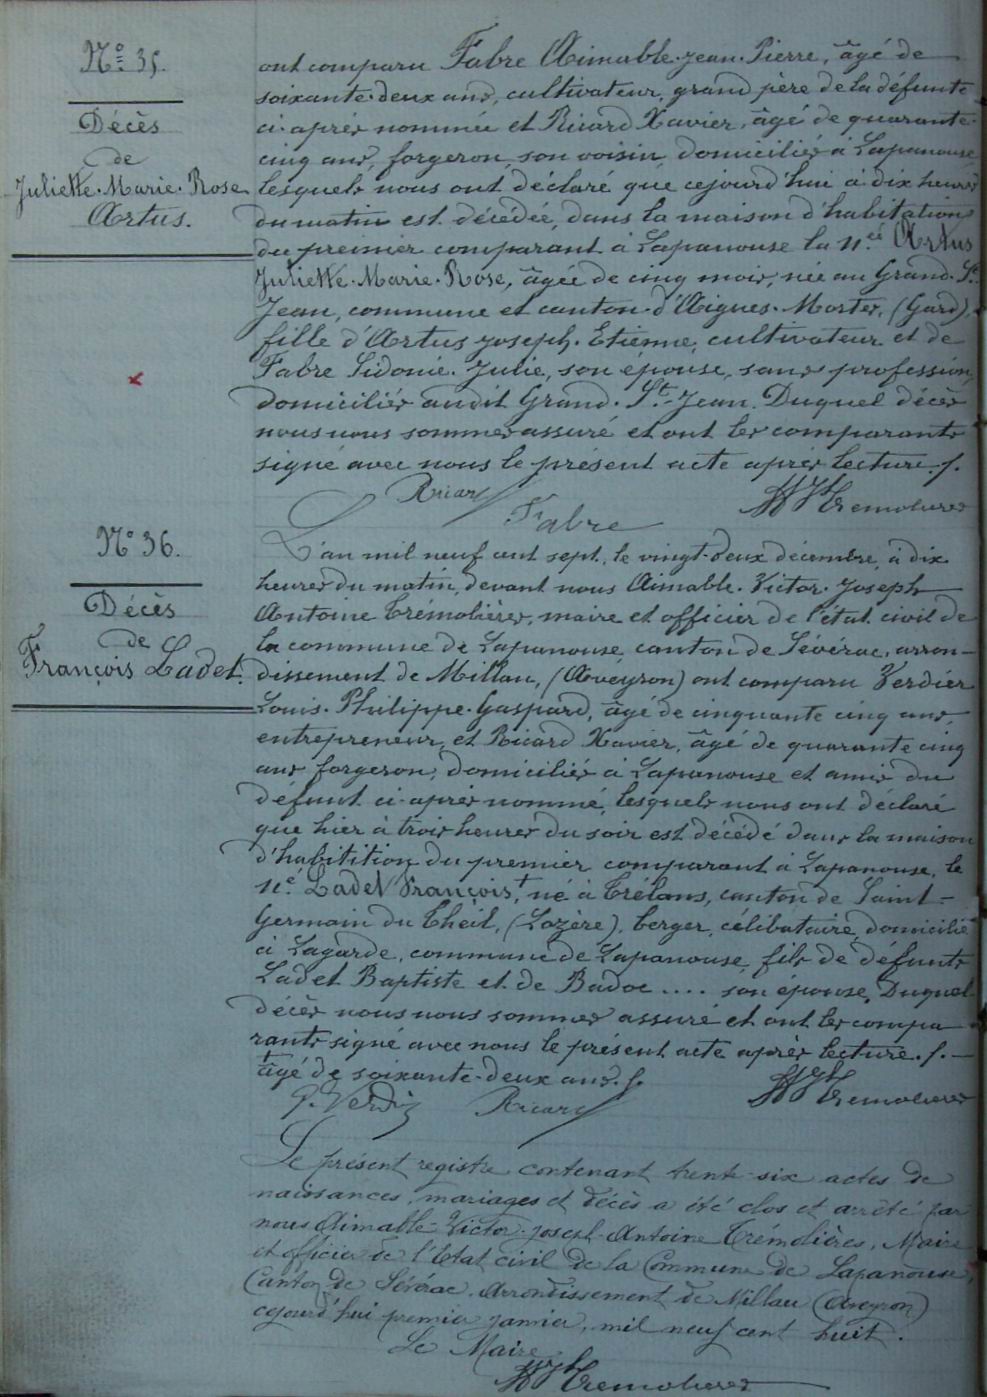 N° 35.
Décès
de
Juliette. Marie. Rose
Artus.
ont comparu Fabre Aimable. Jean. Pierre, âgé de
soixante. deux ans, cultivateur, grand père de la défunte
ci-après nommée et Ricard Xavier, âgé de quarante-
cinq ans, forgeron, son voisin, domiciliés à Lapanouse
lesquels nous ont déclaré que cejourd'hui à dix heures
du matin est décédée, dans la maison d'habitation
du premier comparant à Lapanouse la n.ée Artus
Juliette. Marie. Rose, âgée de cinq mois, née au Grand. St
Jean, commune et canton d'Aigues. Mortes, (Gard),
fille d'Artus Joseph. Etienne, cultivateur et de
Fabre Sidonie. Julie, son épouse, sans profession,
domiciliés audit Grand. St. Jean. Duquel décès
nous nous sommes assuré et ont les comparants
signé avec nous le présent acte après lecture./.
Ricard
Fabre
Tremolieres
N° 36.
Décès
de
François Ladet.
L'an mil neuf cent sept, le vingt-deux décembre, à dix
heures du matin, devant nous Aimable. Victor. Joseph
Antoine Trémolières, maire et officier de l'état civil de
la commune de Lapanouse, canton de Sévérac, arron-
dissement de Millau, (Aveyron) ont comparu Verdier
Louis. Philippe. Gaspard, âgé de cinquante cinq ans,
entrepreneur, et Ricard Xavier, âgé de quarante cinq
ans forgeron, domiciliés à Lapanouse et amis du
défunt ci-après nommé, lesquels nous ont déclaré
que hier à trois heures du soir est décédé dans la maison
d'habitition du premier comparant à Lapanouse, le
n.é Ladet François,+ né à Trélans, canton de Saint-
Germain du Theil, (Lozère), berger, célibataire, domicilié
à Lagarde, commune de Lapanouse, fils de défunts
Ladet Baptiste et de Badoc .... son épouse, Duquel
décès nous nous sommes assuré et ont les compa
rants signé avec nous le présent acte après lecture./.
+ âgé de soixante-deux ans./.
Tremolieres
Ricard
Le présent registre contenant trente-six actes de
naissances, mariages et décès a été clos et arrêté par
nous Aimable-Victor-Joseph-Antoine Trémolières, Maire
et officier de l'Etat civil de la Commune de Lapanouse,
Canton de Sévérac, Arrondissement de Millau (Aveyron)
cejourd'hui premier janvier, mil neuf cent huit.
Le Maire
Tremolieres